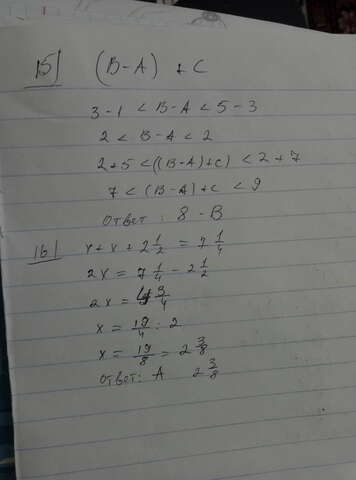 15| (B-A) + C
3-1 < B-A < 5-3
2 < B-A < 2
2+5 < ((B-A)+C) < 2+7
7 < (B-A)+C < 9
ответ : 8 - B
16| x+x+2 1/2 = 7 1/4
2x = 7 1/4 - 2 1/2
2x = 4 3/4
x = 19/4 : 2
x = 19/8 = 2 3/8
ответ: A 2 3/8